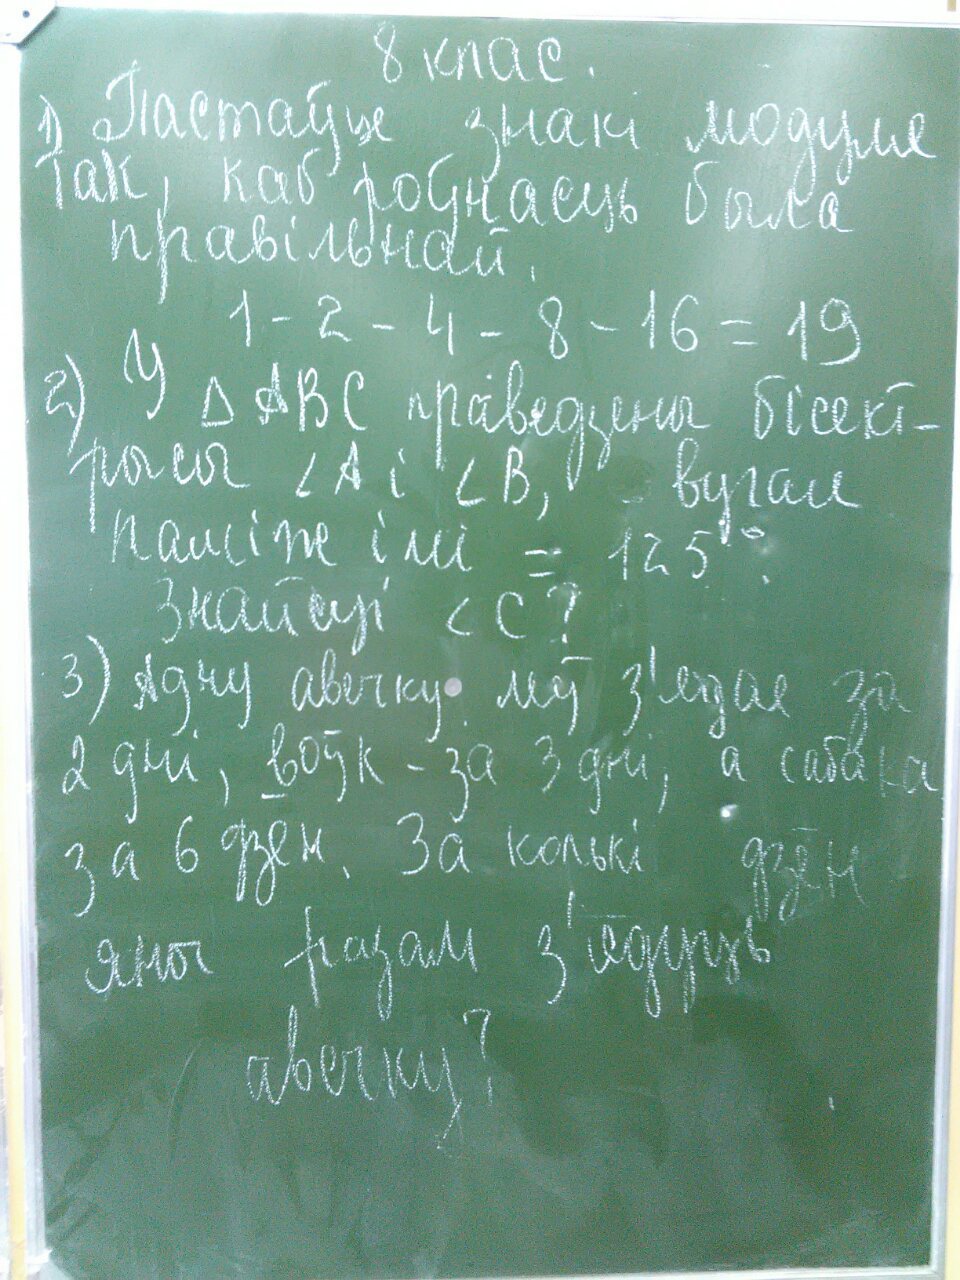 8 клас.
1) Пастаўце знакі модуля
так, каб роўнасць была
правільнай.
1 - 2 - 4 - 8 - 16 = 19
2) У Δ ABC праведзены бісект-
рысы ∠A і ∠B, вугал
паміж імі = 125°.
Знайсці ∠C?
3) Адну авечку леў з'ядае за
2 дні, воўк - за 3 дні, а сабака
за 6 дзён. За колькі дзён
яны разам з'ядуць
авечку?